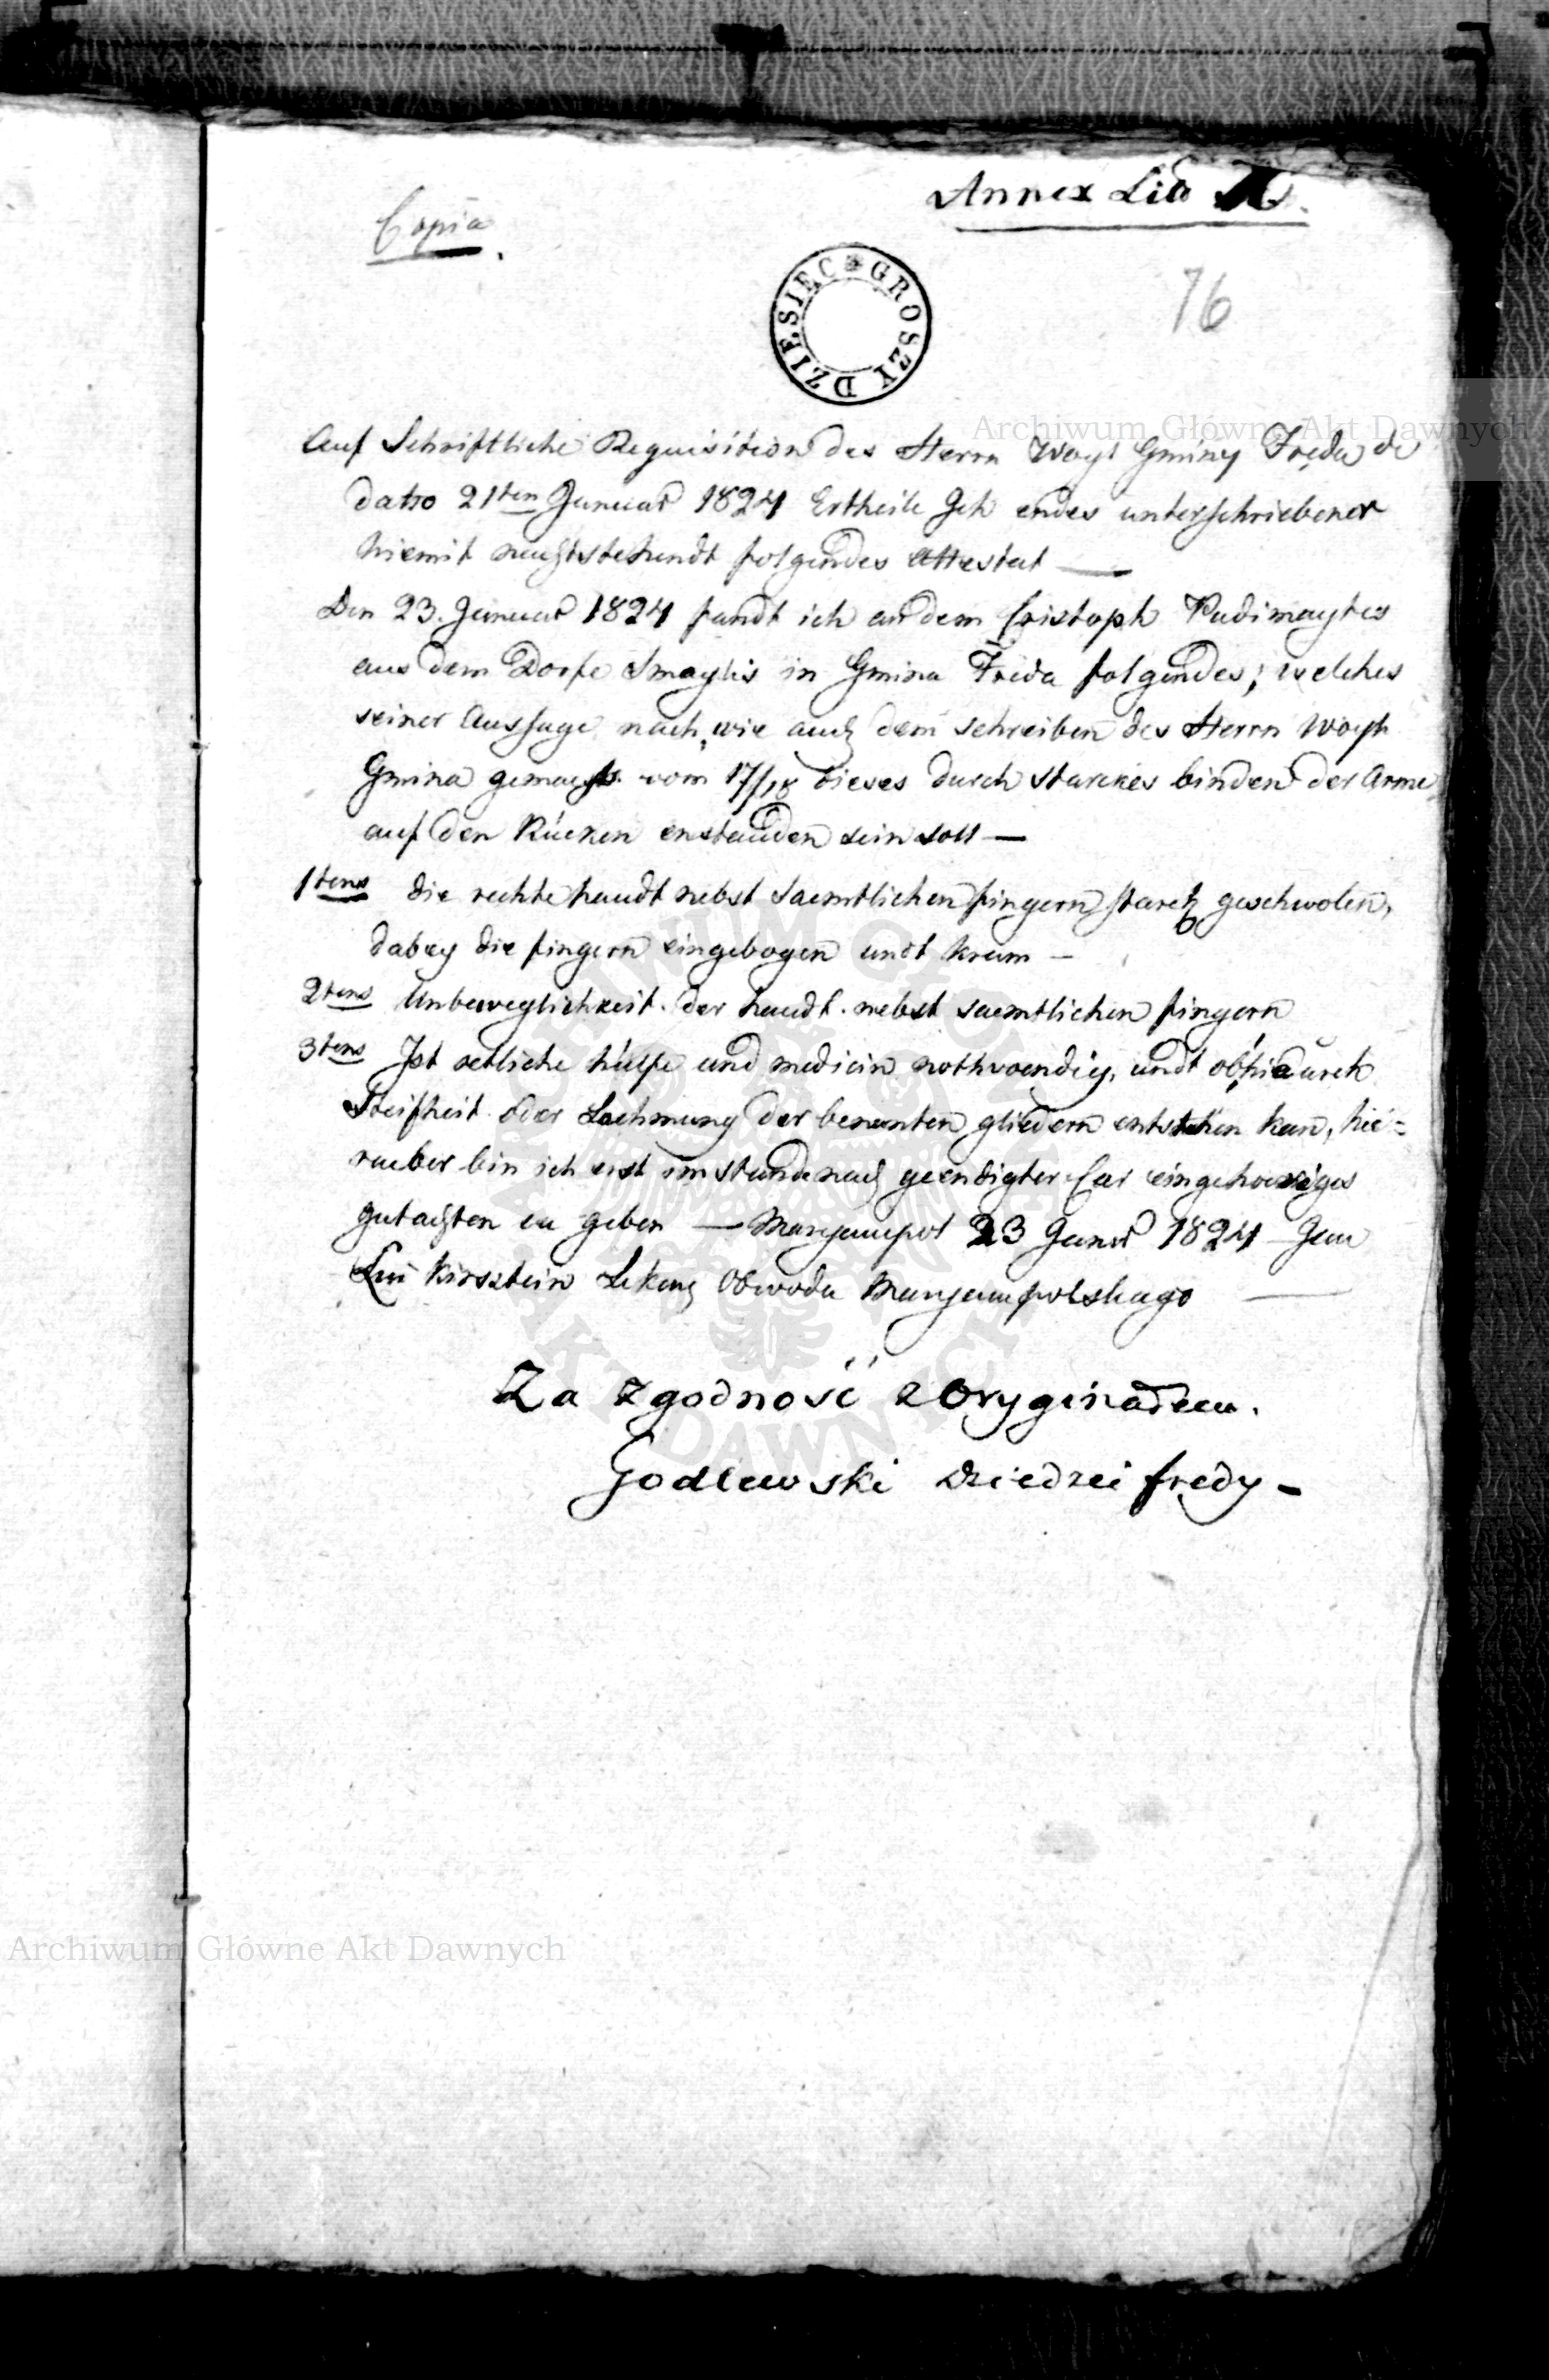 Annex Litt
Copia
76
DZIESIĘC GROSZY
Auf Schriftliche Requisition des Herrn Woyt Gminy Fręda de
datto 21ten Januar 1824 Ertheile Jch endes unterschriebener
hiemit nachstehendt folgendes Attestat —
Den 23. Januar 1824 fandt ich an dem Cristoph Pudimaytes
aus dem Dorfe Smaylis in Gmina Freda folgendes; welches
seiner Aussage nach, wie auch dem schreiben des Herrn Woyt
Gmina vom 17/18 dieses durch starckes binden der Arme
auf den Rücken enstanden sein soll —
1tens die rechte handt nebst saemtlichen fingern starck geschwolen,
dabey die fingern eingebogen undt krum —
2tens Unbeweglichkeit der handt nebst saemtlichen fingern
3tens Jst hülfe und medicin nothwendig, undt ob hiedurch
Steifheit oder Laehmung der benanten gliedern entstehen kan, hie=
raüber bin ich erst im stande nach geendigter Cur ein gehoeriges
gutachten zu geben — Maryampol 23 Januar 1824 Jan
Kirsztein Lekarz Obwodu Maryampolskiego —
Za zgodność z Oryginałem.
Godlewski Dziedzic Fredy —
Archiwum Główne Akt Dawnych
Archiwum Główne Akt Dawnych